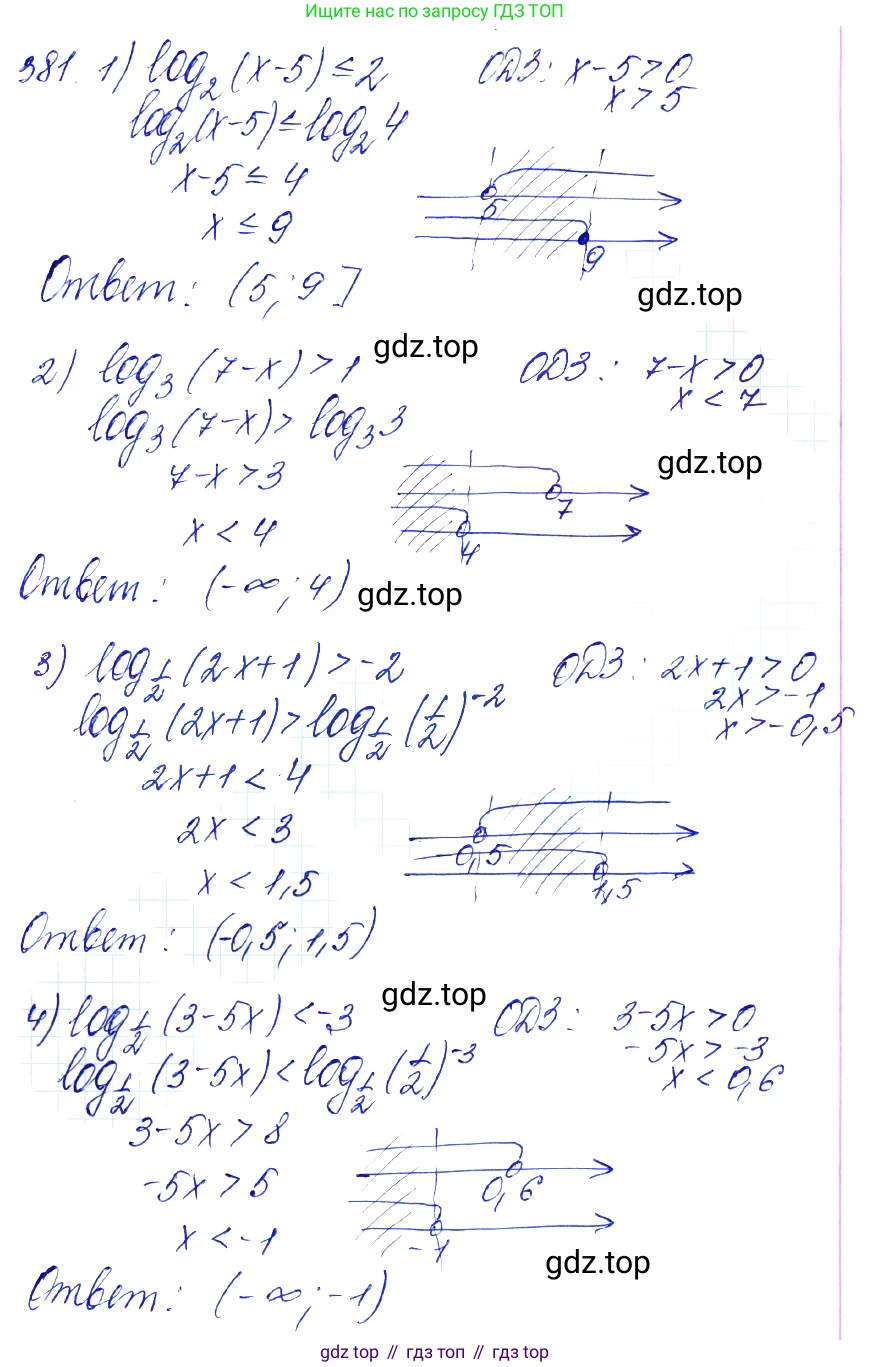 Ищите нас по запросу ГДЗ ТОП
381. 1) log₂(x-5) ≤ 2 ОДЗ: x-5>0
x>5
log₂(x-5) ≤ log₂4
x-5 ≤ 4
x ≤ 9
5
9
Ответ: (5; 9]
gdz.top
gdz.top
2) log₃(7-x) > 1 ОДЗ: 7-x>0
x < 7
log₃(7-x) > log₃3
7-x > 3
x < 4
7
4
gdz.top
Ответ: (-∞; 4)
gdz.top
3) log_{1/2}(2x+1) > -2 ОДЗ: 2x+1>0
2x>-1
x>-0,5
log_{1/2}(2x+1) > log_{1/2}(1/2)⁻²
2x+1 < 4
2x < 3
x < 1,5
0,5
1,5
Ответ: (-0,5; 1,5)
gdz.top
4) log_{1/2}(3-5x) < -3 ОДЗ: 3-5x>0
-5x>-3
x < 0,6
log_{1/2}(3-5x) < log_{1/2}(1/2)⁻³
3-5x > 8
-5x > 5
x < -1
0,6
-1
gdz.top
Ответ: (-∞; -1)
gdz top // гдз топ // гдз top